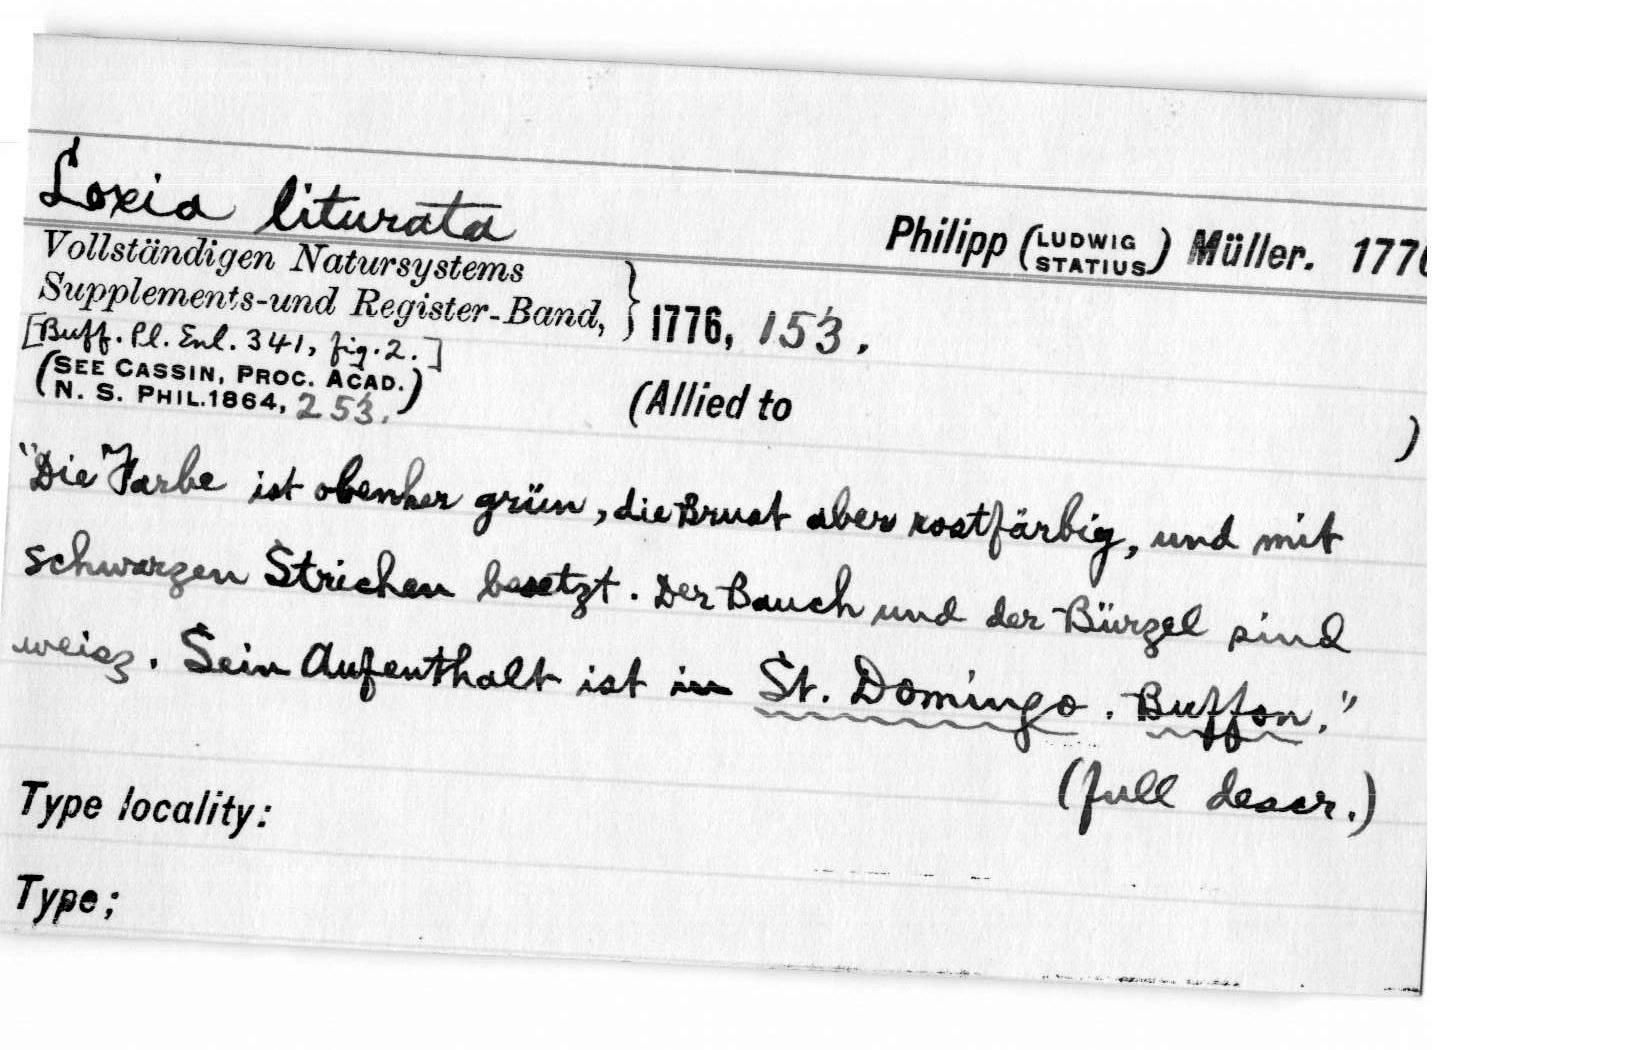 Loxia liturata
Philipp (LUDWIG STATIUS) Müller. 1776
Vollständigen Natursystems
Supplements-und Register-Band, } 1776, 153.
[Buff. Pl. Enl. 341, fig. 2.]
(SEE CASSIN, PROC. ACAD.
N. S. PHIL. 1864, 253.)
(Allied to )
"Die Farbe ist obenher grün, die Brust aber rostfärbig, und mit
schwarzen Strichen besetzt. Der Bauch und der Bürzel sind
weisz. Sein Aufenthalt ist in St. Domingo. Buffon."
(full descr.)
Type locality:
Type;